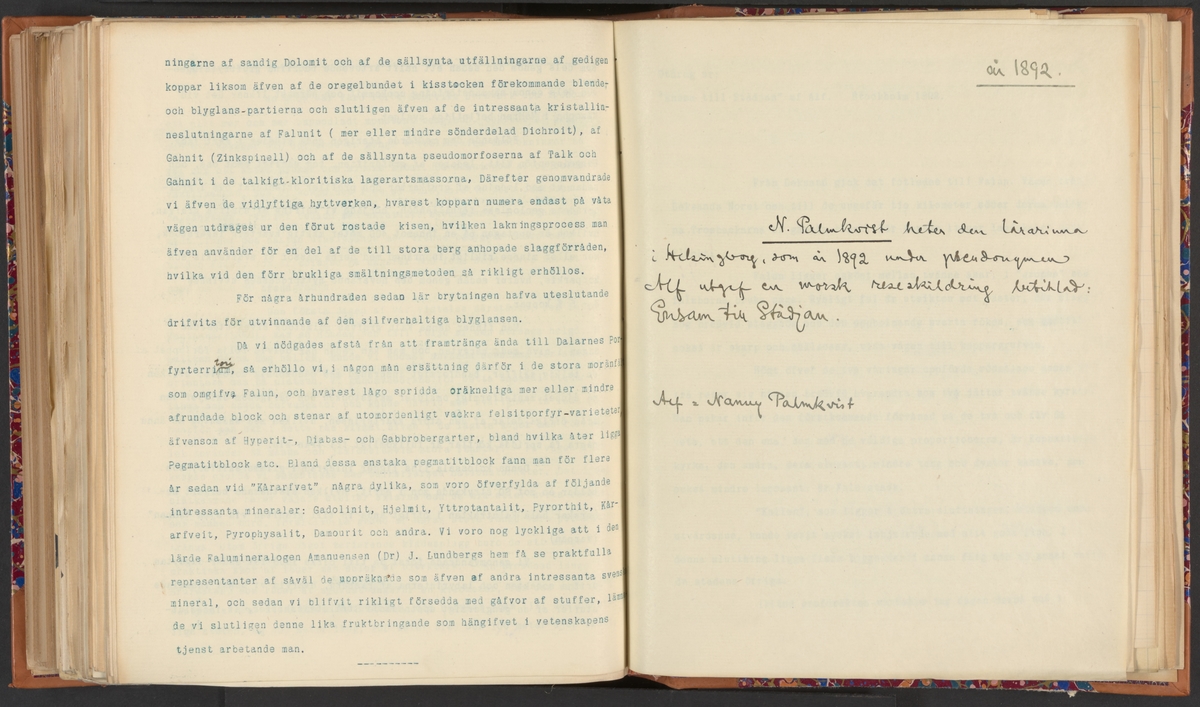 ningarne af sandig Dolomit och af de sällsynta utfällningarne af gedigen
koppar liksom äfven af de oregelbundet i kisstocken förekommande blende-
och blyglans-partierna och slutligen äfven af de intressanta kristallin-
neslutningarne af Falunit ( mer eller mindre sönderdelad Dichroit), af
Gahnit (Zinkspinell) och af de sällsynta pseudomorfoserna af Talk och
Gahnit i de talkigt-kloritiska lagerartsmassorna, Därefter genomvandrade
vi äfven de vidlyftiga hyttverken, hvarest kopparn numera endast på våta
vägen utdrages ur den förut rostade kisen, hvilken lakningsprocess man
äfven använder för en del af de till stora berg anhopade slaggförråden,
hvilka vid den förr brukliga smältningsmetoden så rikligt erhöllos.
För några århundraden sedan lär brytningen hafva uteslutande
drifvits för utvinnande af den silfverhaltiga blyglansen.
Då vi nödgades afstå från att framtränga ända till Dalarnes Por-
fyrterritorium, så erhöllo vi i någon mån ersättning därför i de stora moränfä
som omgifva Falun, och hvarest lågo spridda oräkneliga mer eller mindre
afrundade block och stenar af utomordenligt vackra felsitporfyr-varieteter
äfvensom af Hyperit-, Diabas- och Gabbrobergarter, bland hvilka åter ligga
Pegmatitblock etc. Bland dessa enstaka pegmatitblock fann man för flere
år sedan vid "Kårarfvet" några dylika, som voro öfverfylda af följande
intressanta mineraler: Gadolinit, Hjelmit, Yttrotantalit, Pyrorthit, Kår-
arfveit, Pyrophysalit, Damourit och andra. Vi voro nog lyckliga att i den
lärde Falumineralogen Amanuensen (Dr) J. Lundbergs hem få se praktfulla
representanter af såväl de uppräknade som äfven af andra intressanta svens
mineral, och sedan vi blifvit rikligt försedda med gåfvor af stuffer, lämn
de vi slutligen denne lika fruktbringande som hängifvet i vetenskapens
tjenst arbetande man.
år 1892.
N. Palmkvist heter den lärarinna
i Helsingborg, som år 1892 under pseudonymen
Alf utgef en norsk reseskildring betitlad:
Ensam till Städjan.
Alf = Nanny Palmkvist